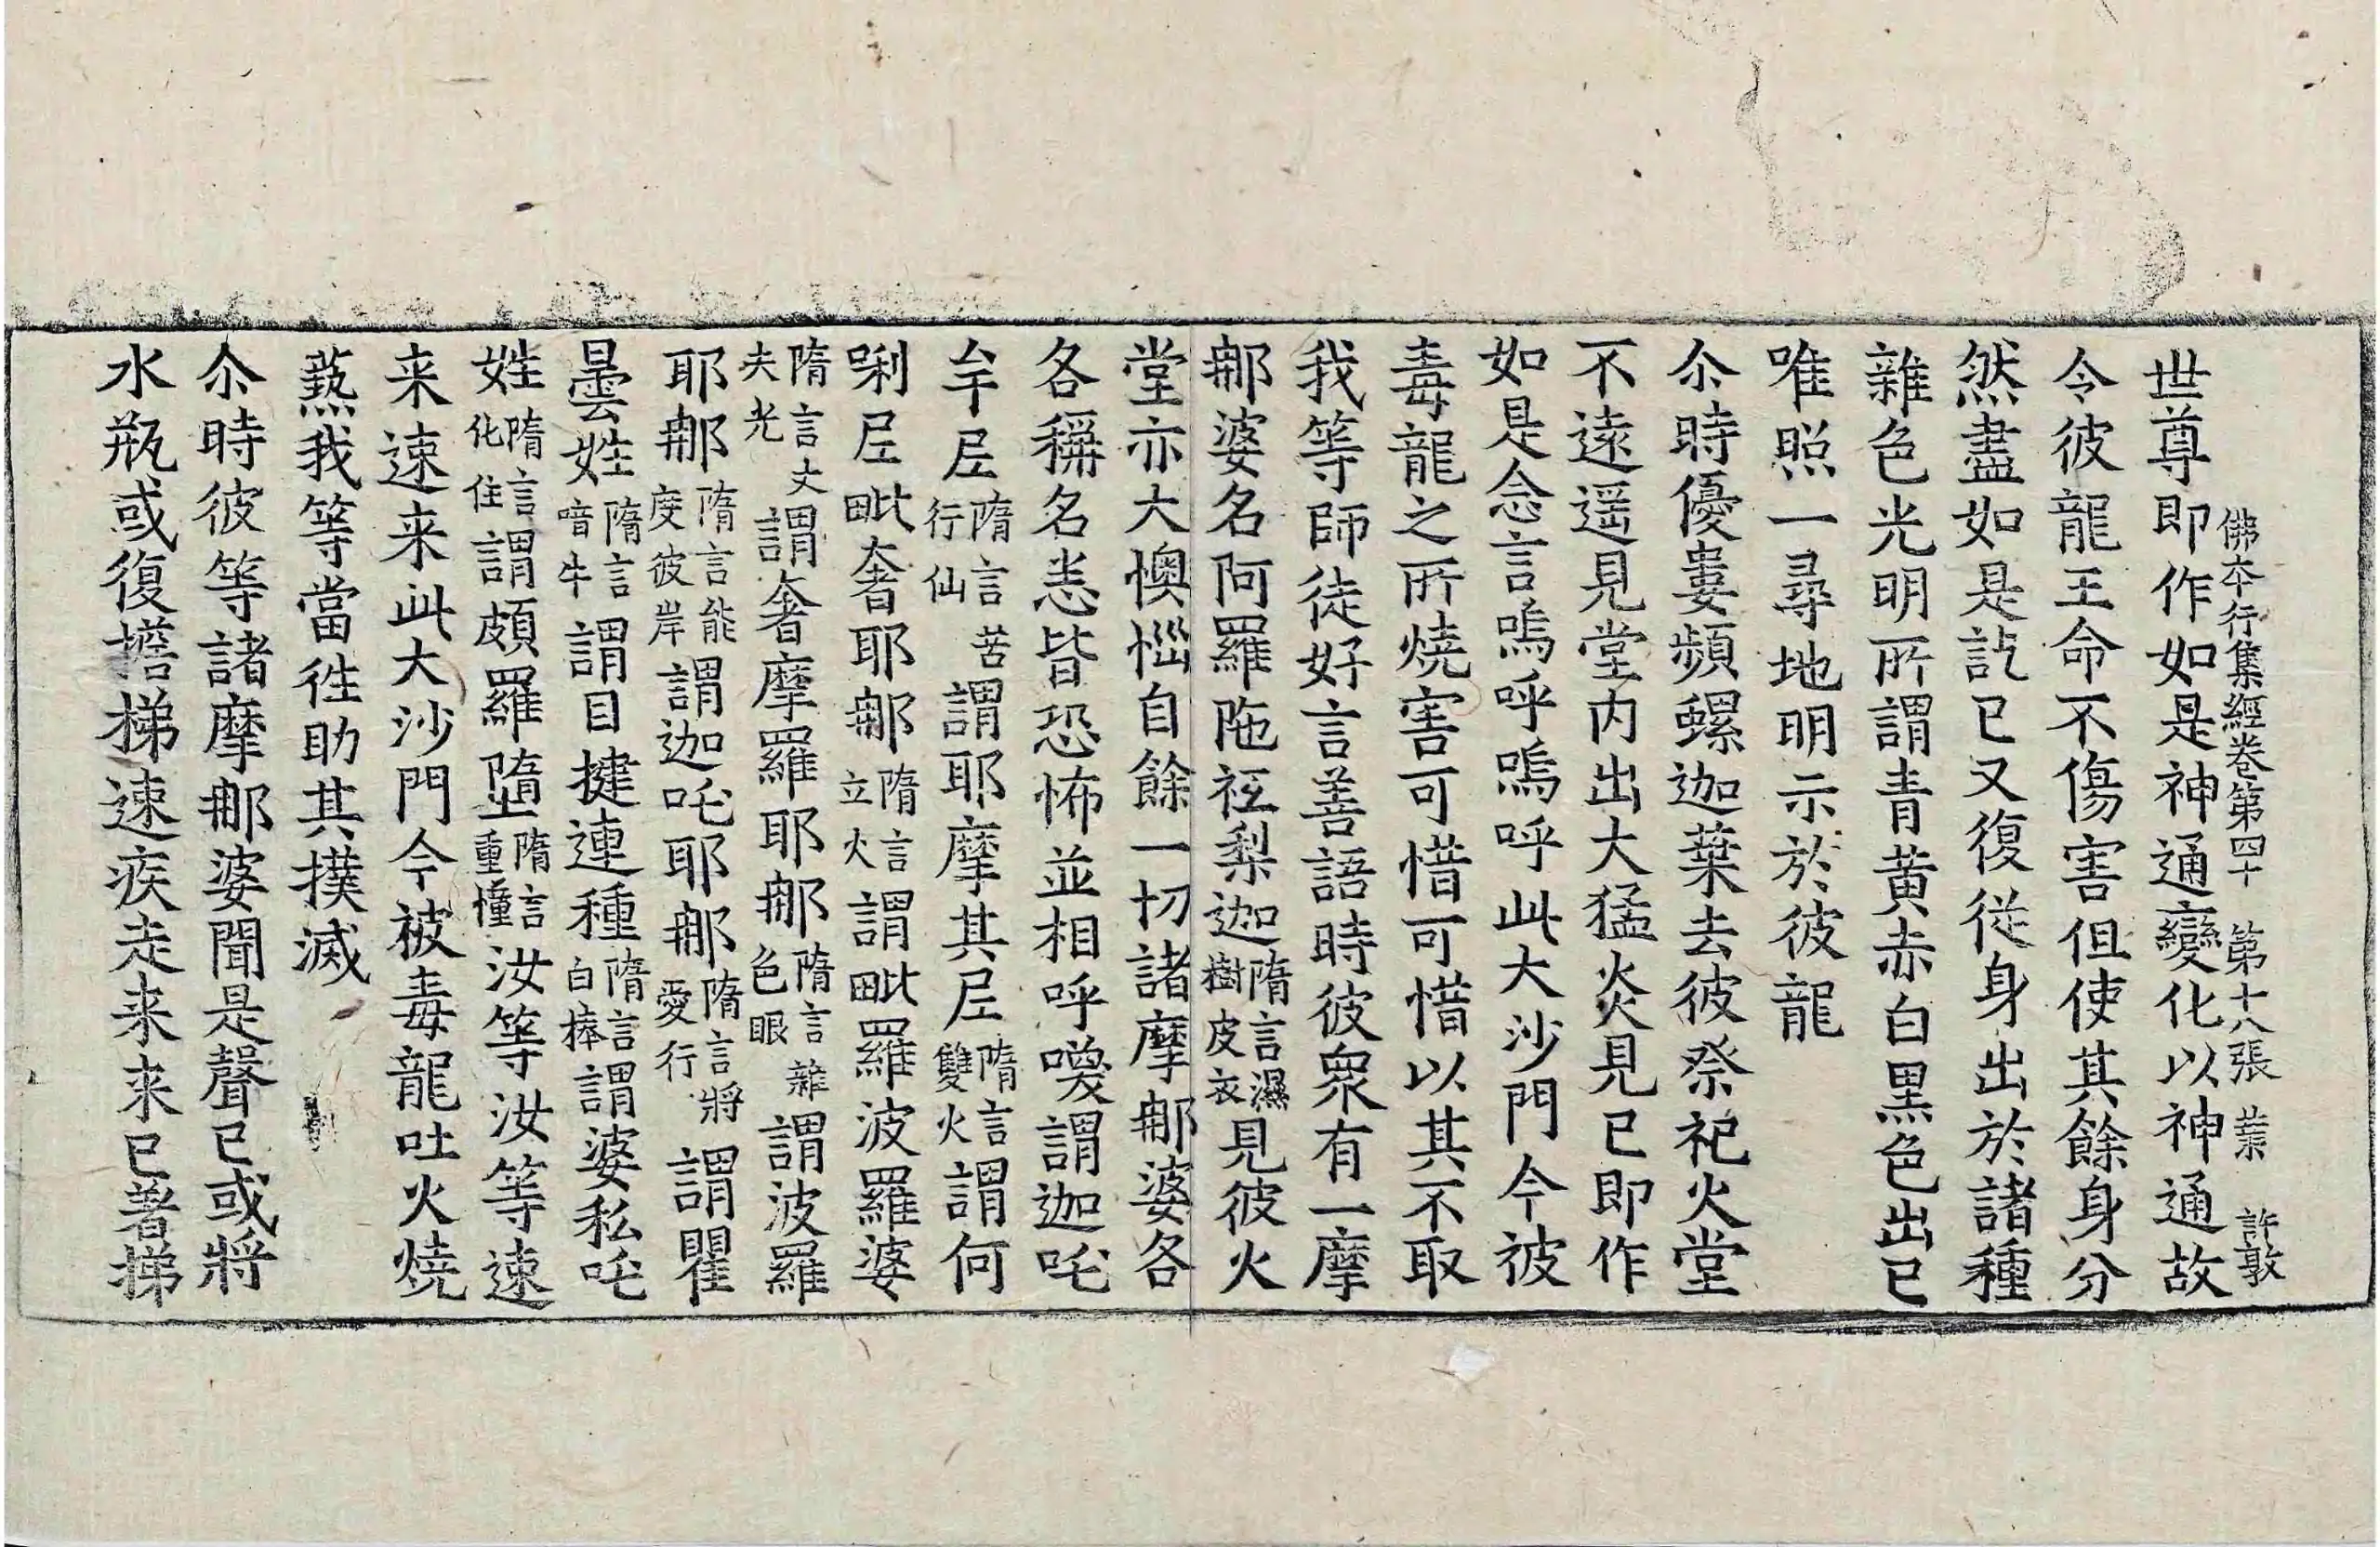 佛本行集經卷第四十　第十八張　業　許敦
世尊即作如是神通變化以神通故
令彼龍王命不傷害但使其餘身分
然盡如是訖已又復從身出於諸種
雜色光明所謂青黄赤白黒色出已
唯照一尋地明示於彼龍
尒時優婁頻螺迦葉去彼祭祀火堂
不遠遥見堂内出大猛炎見已即作
如是念言嗚呼嗚呼此大沙門今彼
毒龍之所燒害可惜可惜以其不取
我等師徒好言善語時彼衆有一摩
那婆名阿羅陁祇梨迦隋言濕樹皮衣見彼火
堂亦大懊惱自餘一切諸摩那婆各
各稱名悉皆恐怖並相呼喚謂迦吒
牟尼隋言苦行仙謂耶摩其尼隋言雙火謂何
唎尼毗奢耶那隋言立火謂毗羅波羅婆
隋言丈夫光謂奢摩羅耶那隋言雜色眼謂波羅
耶那隋言能度彼岸謂迦吒耶那隋言將愛行謂瞿
曇姓隋言喑牛謂目揵連種隋言白棒謂婆私吒
姓隋言化住謂頗羅墮隋言重幢汝等汝等速
来速来此大沙門今被毒龍吐火燒
爇我等當往助其撲滅
尒時彼等諸摩那婆聞是聲已或將
水瓶或復擔梯速疾走来来已著梯